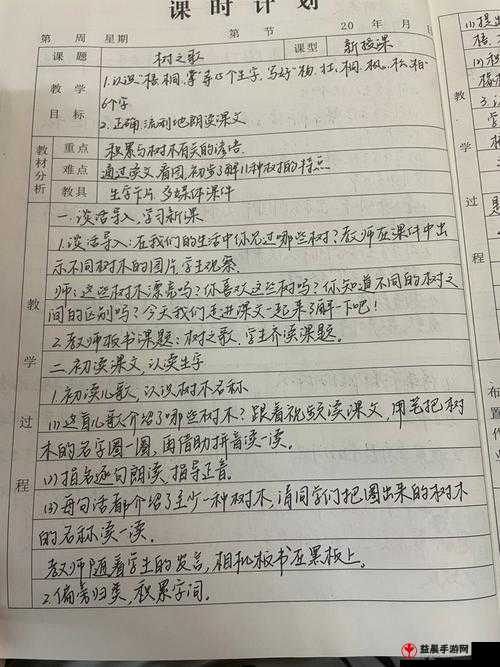 课时计划
第 周 星期 第 节 20 年 月 日
课题 树之歌 课型 新授课
教学目标
1.认识"梧、桐、掌"等15个生字，写好"杨、壮、桐、枫、松、柏"
6个字
2.正确、流利地朗读课文
教材分析
重点 积累与树木有关的
难点 通过读文、看图，初步了解几种树的特点
教具 生字卡片 多媒体课件
教学过程
一、谈话导入，学习新课
1.谈话导入：在我们的生活中你见过哪些树？教师在课件中出
示不同树木的图片，学生观察。
师：这些树木漂亮吗？你喜欢这些树吗？你知道不同的树之
间的区别吗？今天我们走进课文一起来了解一下吧！
2.教师板书课题：树之歌，学生齐读课题。
二、初读课文，认读生字
1.初读儿歌，认识树木名称
(1)这首儿歌介绍了哪些树木？跟着视频读课文，用笔把树
木的名字圈一圈，再借助拼音读一读。
(2)指名逐句朗读，指导正音。
(3)每句话都介绍了至少一种树木，请同学们把圈出来的树木
的名称读一读。
教师随着学生的发言，相机板书在黑板上。
2.偏旁归类，积累字词。
过
学
布置作
益晨手游网